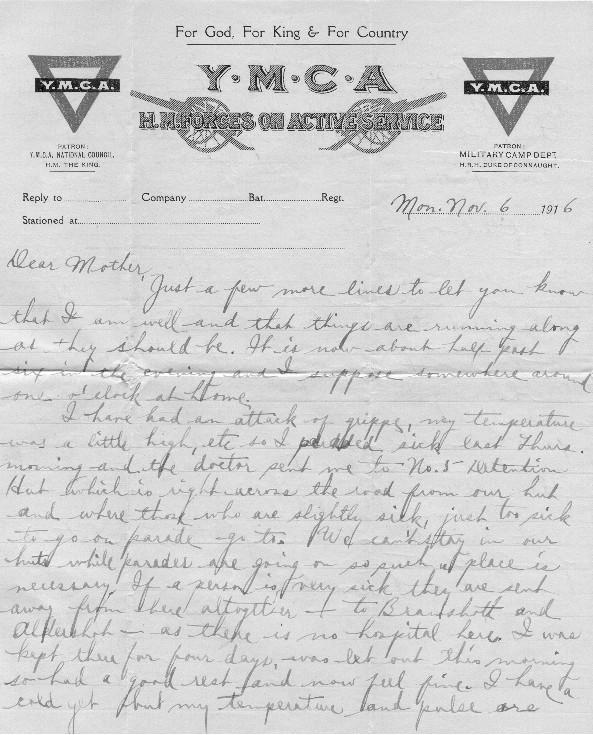 For God, For King & For Country
Y·M·C·A
H.M. FORCES ON ACTIVE SERVICE
Y.M.C.A.
PATRON:
Y.M.C.A. NATIONAL COUNCIL,
H.M. THE KING.
Y.M.C.A.
PATRON:
MILITARY CAMP DEPT.
H.R.H. DUKE OF CONNAUGHT.
Reply to Company Bat. Regt.
Stationed at
Mon. Nov. 6 1916
Dear Mother,
Just a few more lines to let you know
that I am well and that things are running along
as they should be. It is now about half past
six in the evening and I suppose somewhere around
one o'clock at home.
I have had an attack of grippe, my temperature
was a little high, etc so I paraded sick last Thurs.
morning and the doctor sent me to No. 5 Detention
Hut which is right across the road from our hut
and where those who are slightly sick, just too sick
to go on parade go to. We can't stay in our
huts while parades are going on so such a place is
necessary. If a person is very sick they are sent
away from here altogether — to Bramshott and
Aldershot — as there is no hospital here. I was
kept there for four days, was let out this morning
so had a good rest and now feel fine. I have a
cold yet but my temperature and pulse are